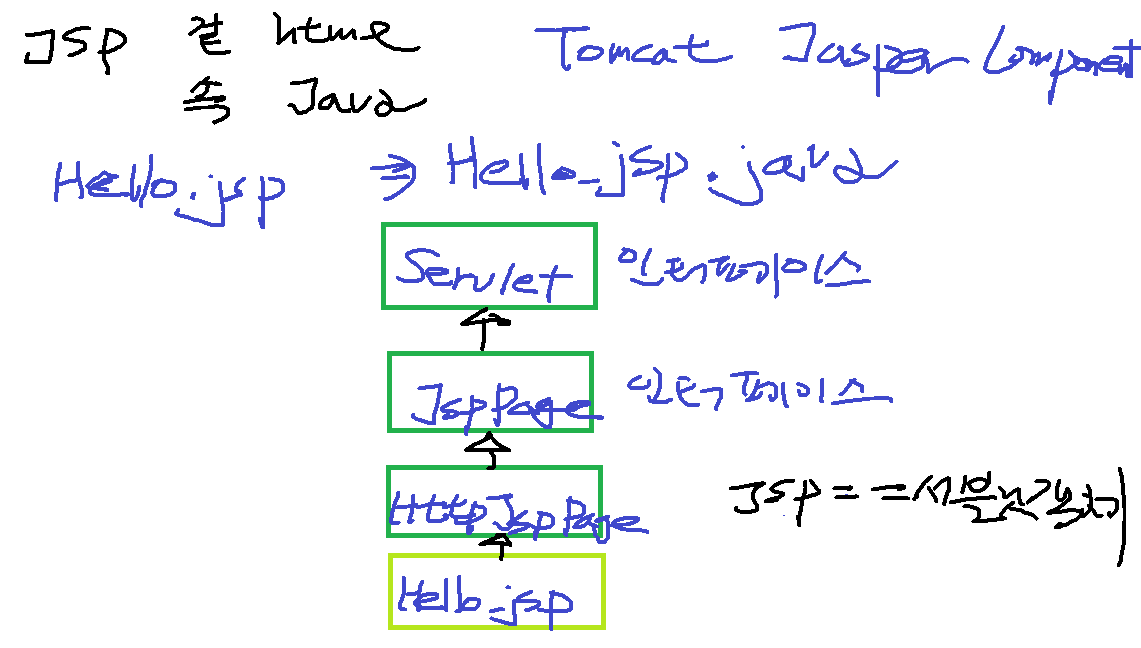 JSP 겉 html
속 Java
Tomcat Jasper Component
Hello.jsp ⇒ Hello_jsp.java
Servlet 인터페이스
JspPage 인터페이스
HttpJspPage
JSP ==
Hello_jsp